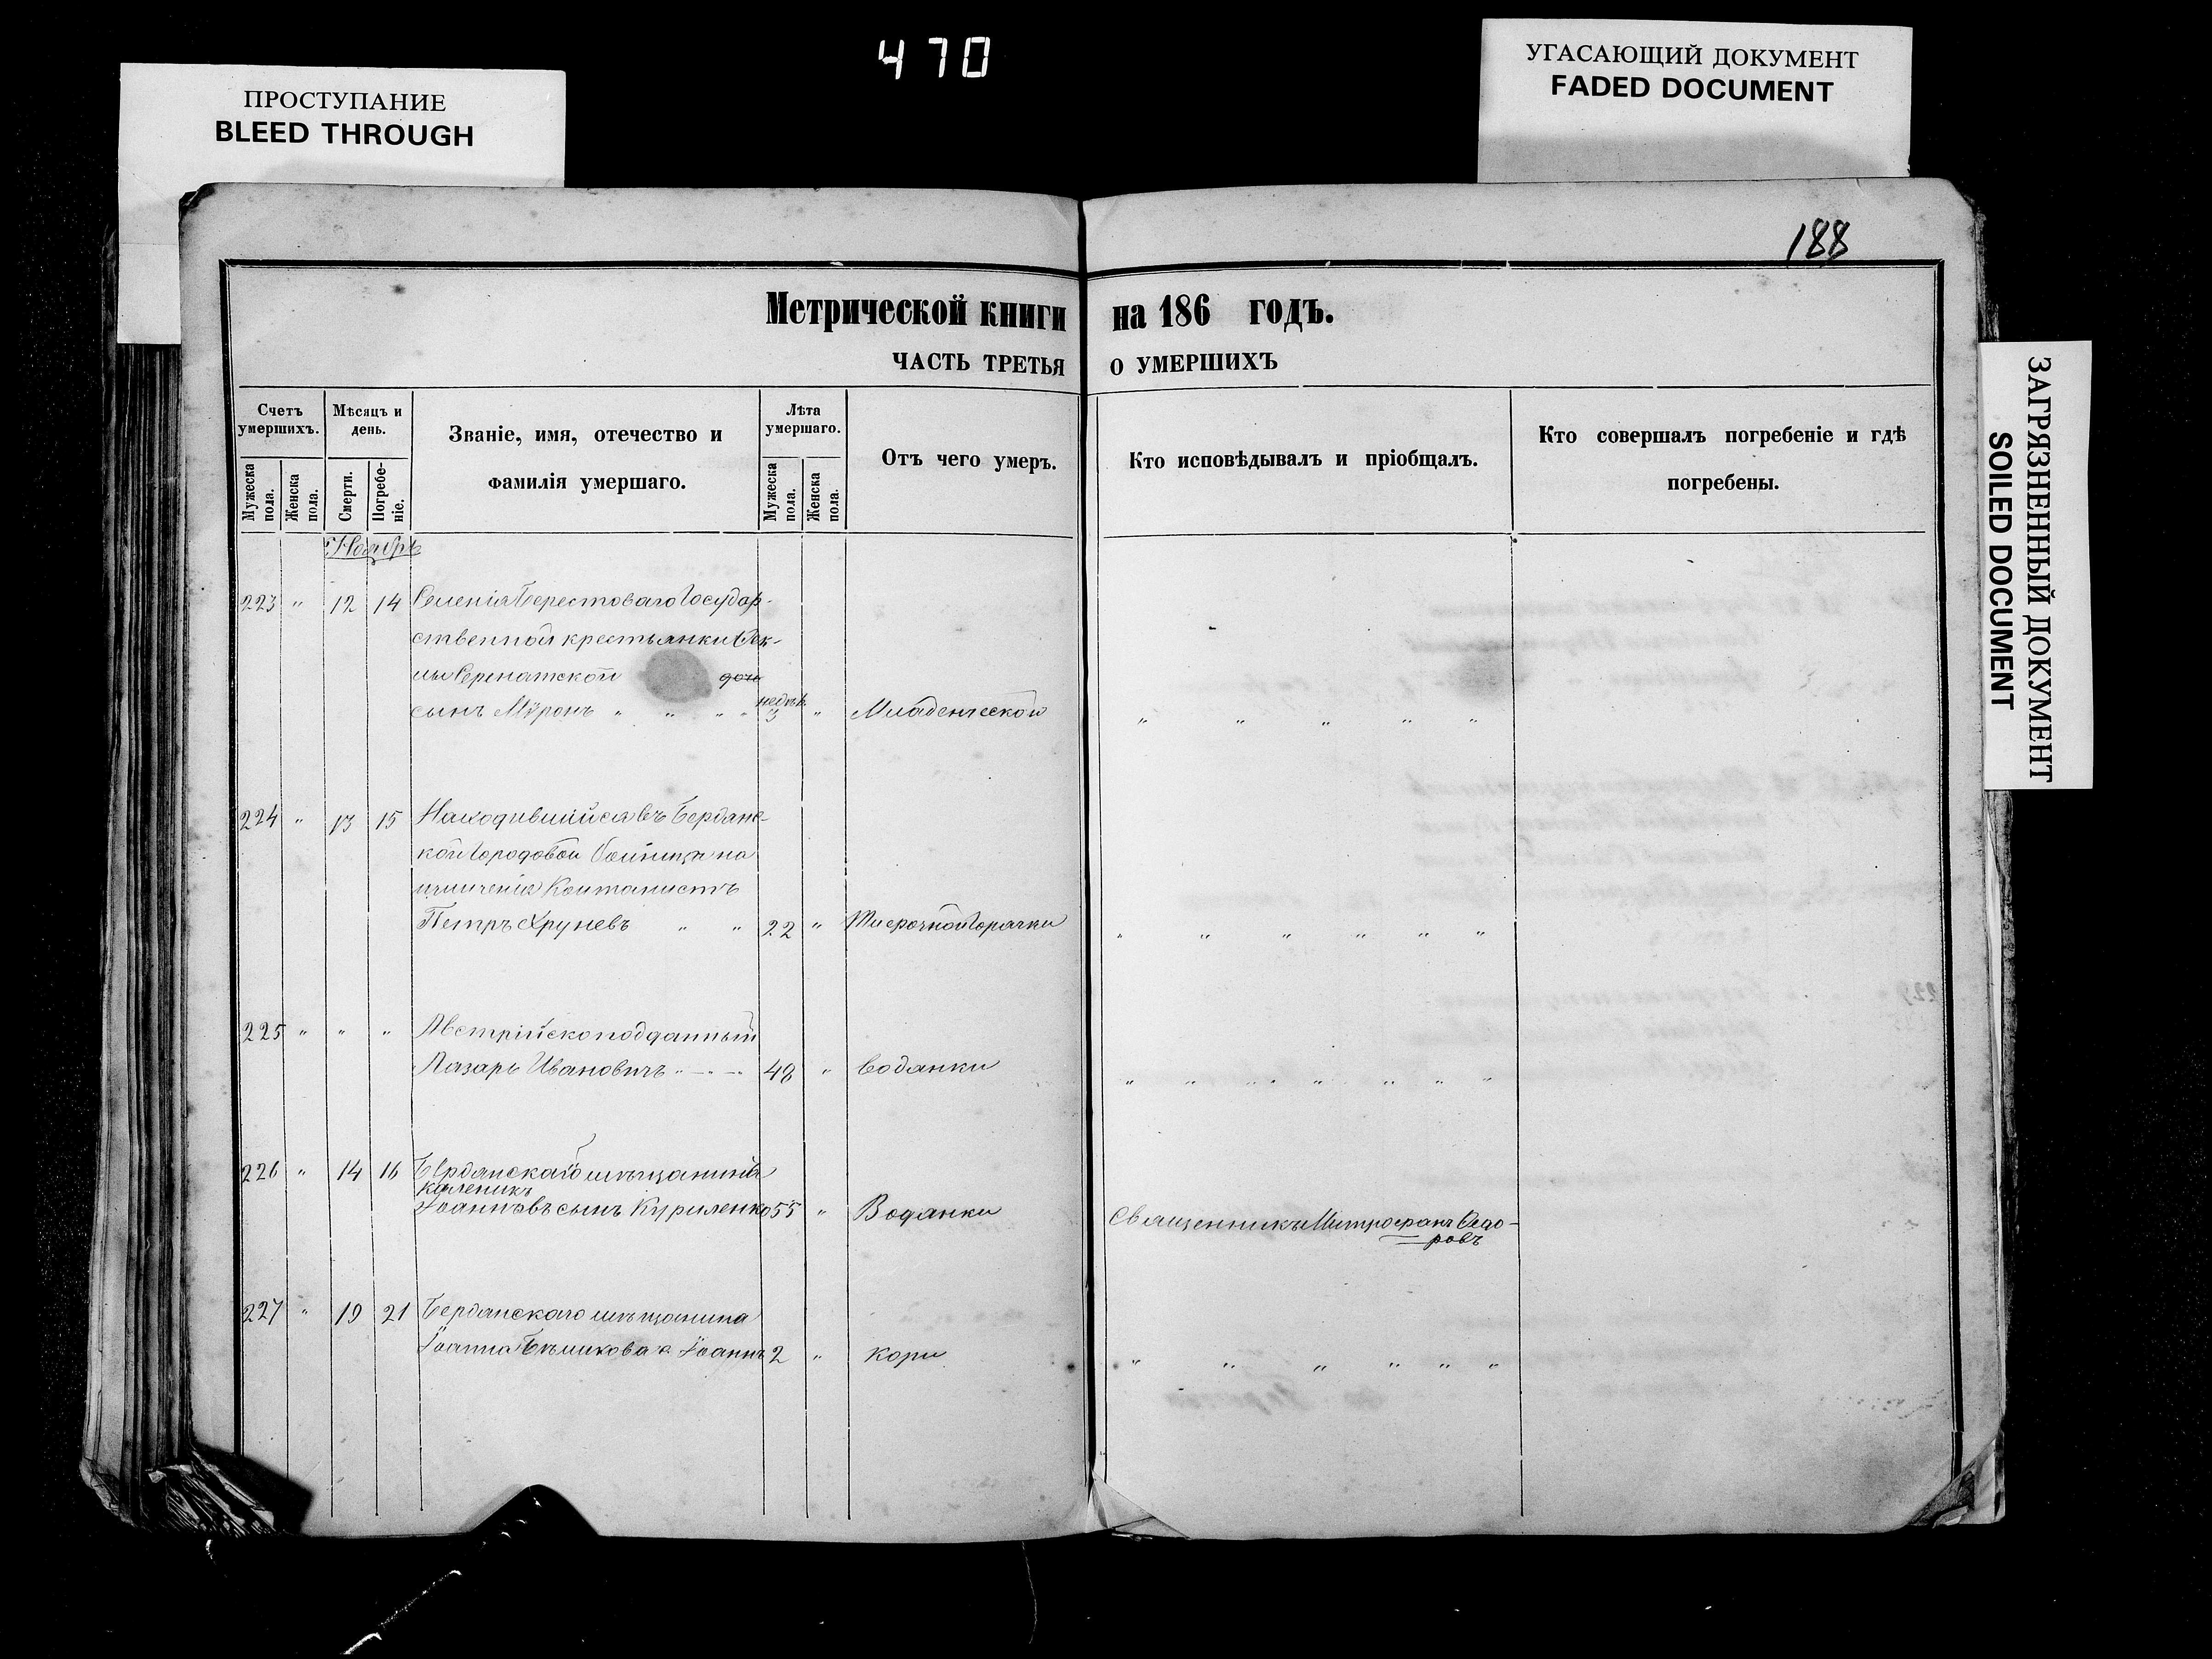 470
ПРОСТУПАНИЕ
BLEED THROUGH
УГАСАЮЩИЙ ДОКУМЕНТ
FADED DOCUMENT
ЗАГРЯЗНЕННЫЙ ДОКУМЕНТ
SOILED DOCUMENT
188
Метрической книги на 186 годъ.
ЧАСТЬ ТРЕТЬЯ О УМЕРШИХЪ
Счетъ умершихъ.
Мужеска пола.
Женска пола.
Мѣсяцъ и день.
Смерти.
Погребеніе.
Званіе, имя, отечество и
фамилія умершаго.
Лѣта умершаго.
Мужеска пола.
Женска пола.
Отъ чего умеръ.
Кто исповѣдывалъ и пріобщалъ.
Кто совершалъ погребеніе и гдѣ
погребены.
Ноябрь
223 " 12 14 Селенія Берестоваго Государ-
ственной крестьянки Фек-
лы дочь
сынъ Мѵронъ " " " " недѣль 3 " Младенческой " " " " "
224 " 13 15 Находившійся въ Бердянс-
кой Городовой больницы на
изличеніи
Петръ Хруневъ " " 22 " горячки " " " " " "
225 " " " Австрійскоподданный
Лазарь Ивановичъ 48 " Водянки " " " " " " " "
226 " 14 16 Бердянскаго мѣщанина
Каленикъ
Іоанновъ сынъ Куриленко 55 " Водянки Священникъ Митрофанъ Федо-
ровъ
227 " 19 21 Бердянскаго мѣщанина
Іоанна Іоаннъ 2 " кори " " " " " "